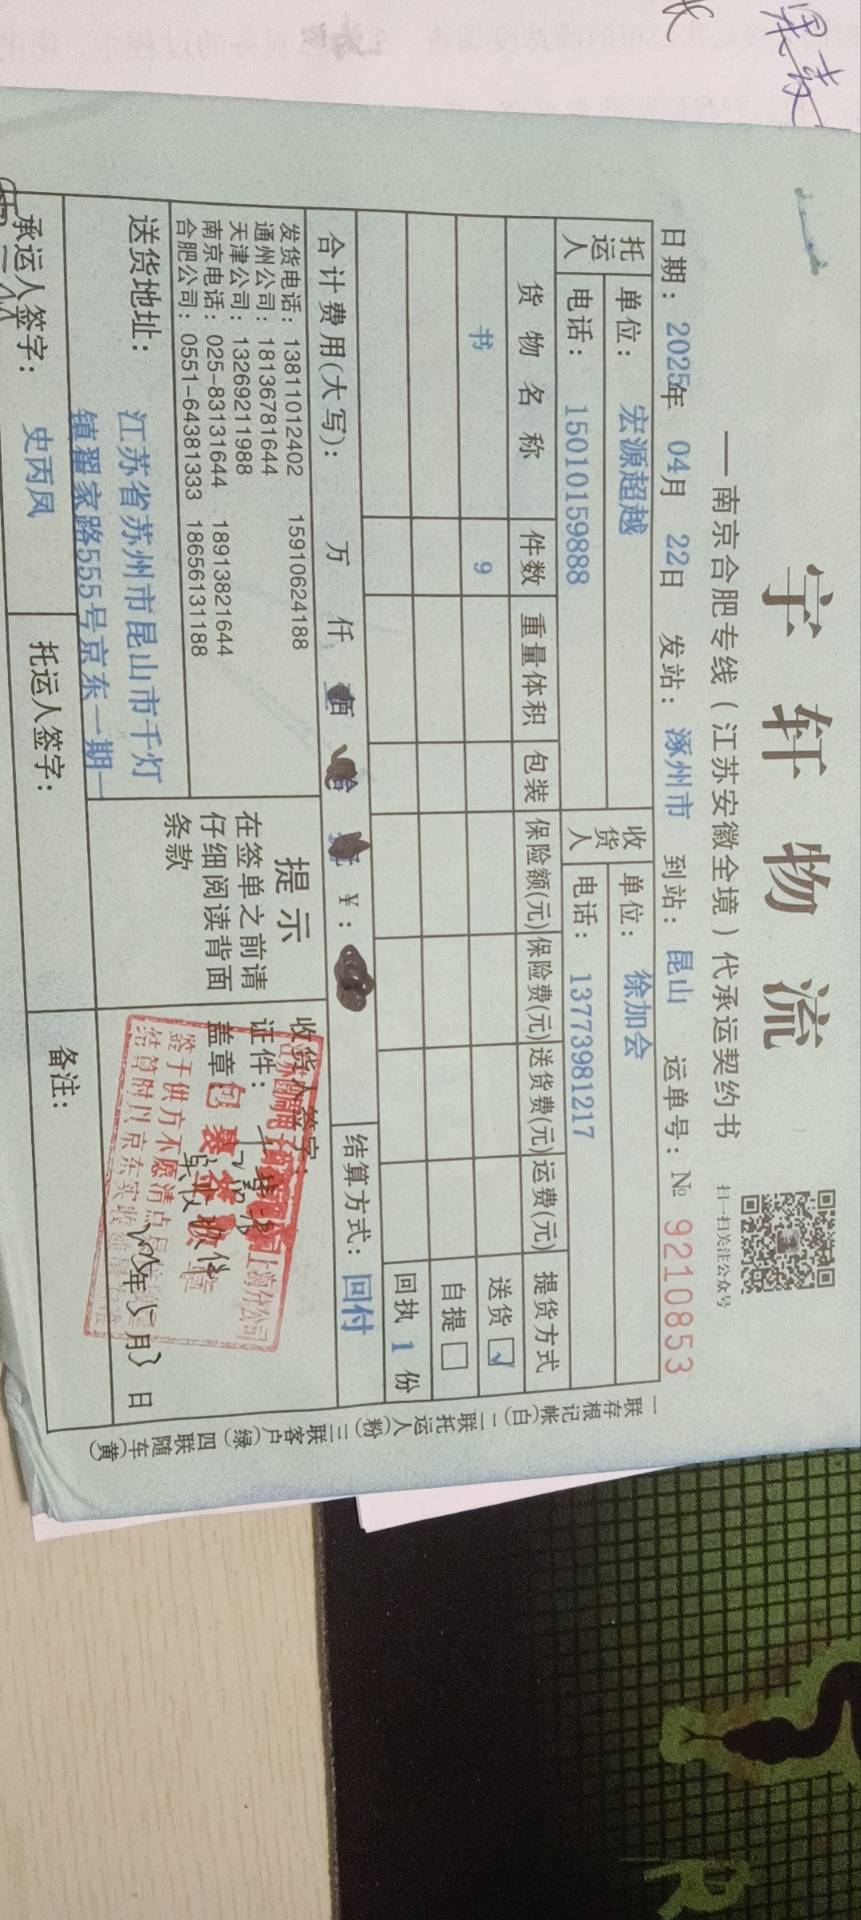 宇轩物流
—南京合肥专线(江苏安徽全境)代承运契约书
扫一扫关注公众号
日期: 2025年 04月 22日 发站: 涿州市 到站: 昆山 运单号: № 9210853
托运人 单位: 宏源超越 收货人 单位: 徐加会
电话: 15010159888 电话: 13773981217
货物名称 件数 重量体积 包装 保险额(元) 保险费(元) 送货费(元) 运费(元) 提货方式
书 9 送货 ☑
自提 □
回执 1 份
合计费用(大写): 万 仟 佰 ¥: 结算方式: 回付
发货电话: 13811012402 15910624188
通州公司: 18136781644
天津公司: 13269211988
南京电话: 025-83131644 18913821644
合肥公司: 0551-64381333 18656131188
提示
在签单之前请
仔细阅读背面
条款
收货人签字:
证件:
盖章:
包裹
年 月 日
送货地址: 江苏省苏州市昆山市千灯
镇翟家路555号京东一期一
承运人签字: 史丙凤 托运人签字: 备注:
一联存根记帐(白) 二联托运人(粉) 三联客户(绿) 四联随车(黄)